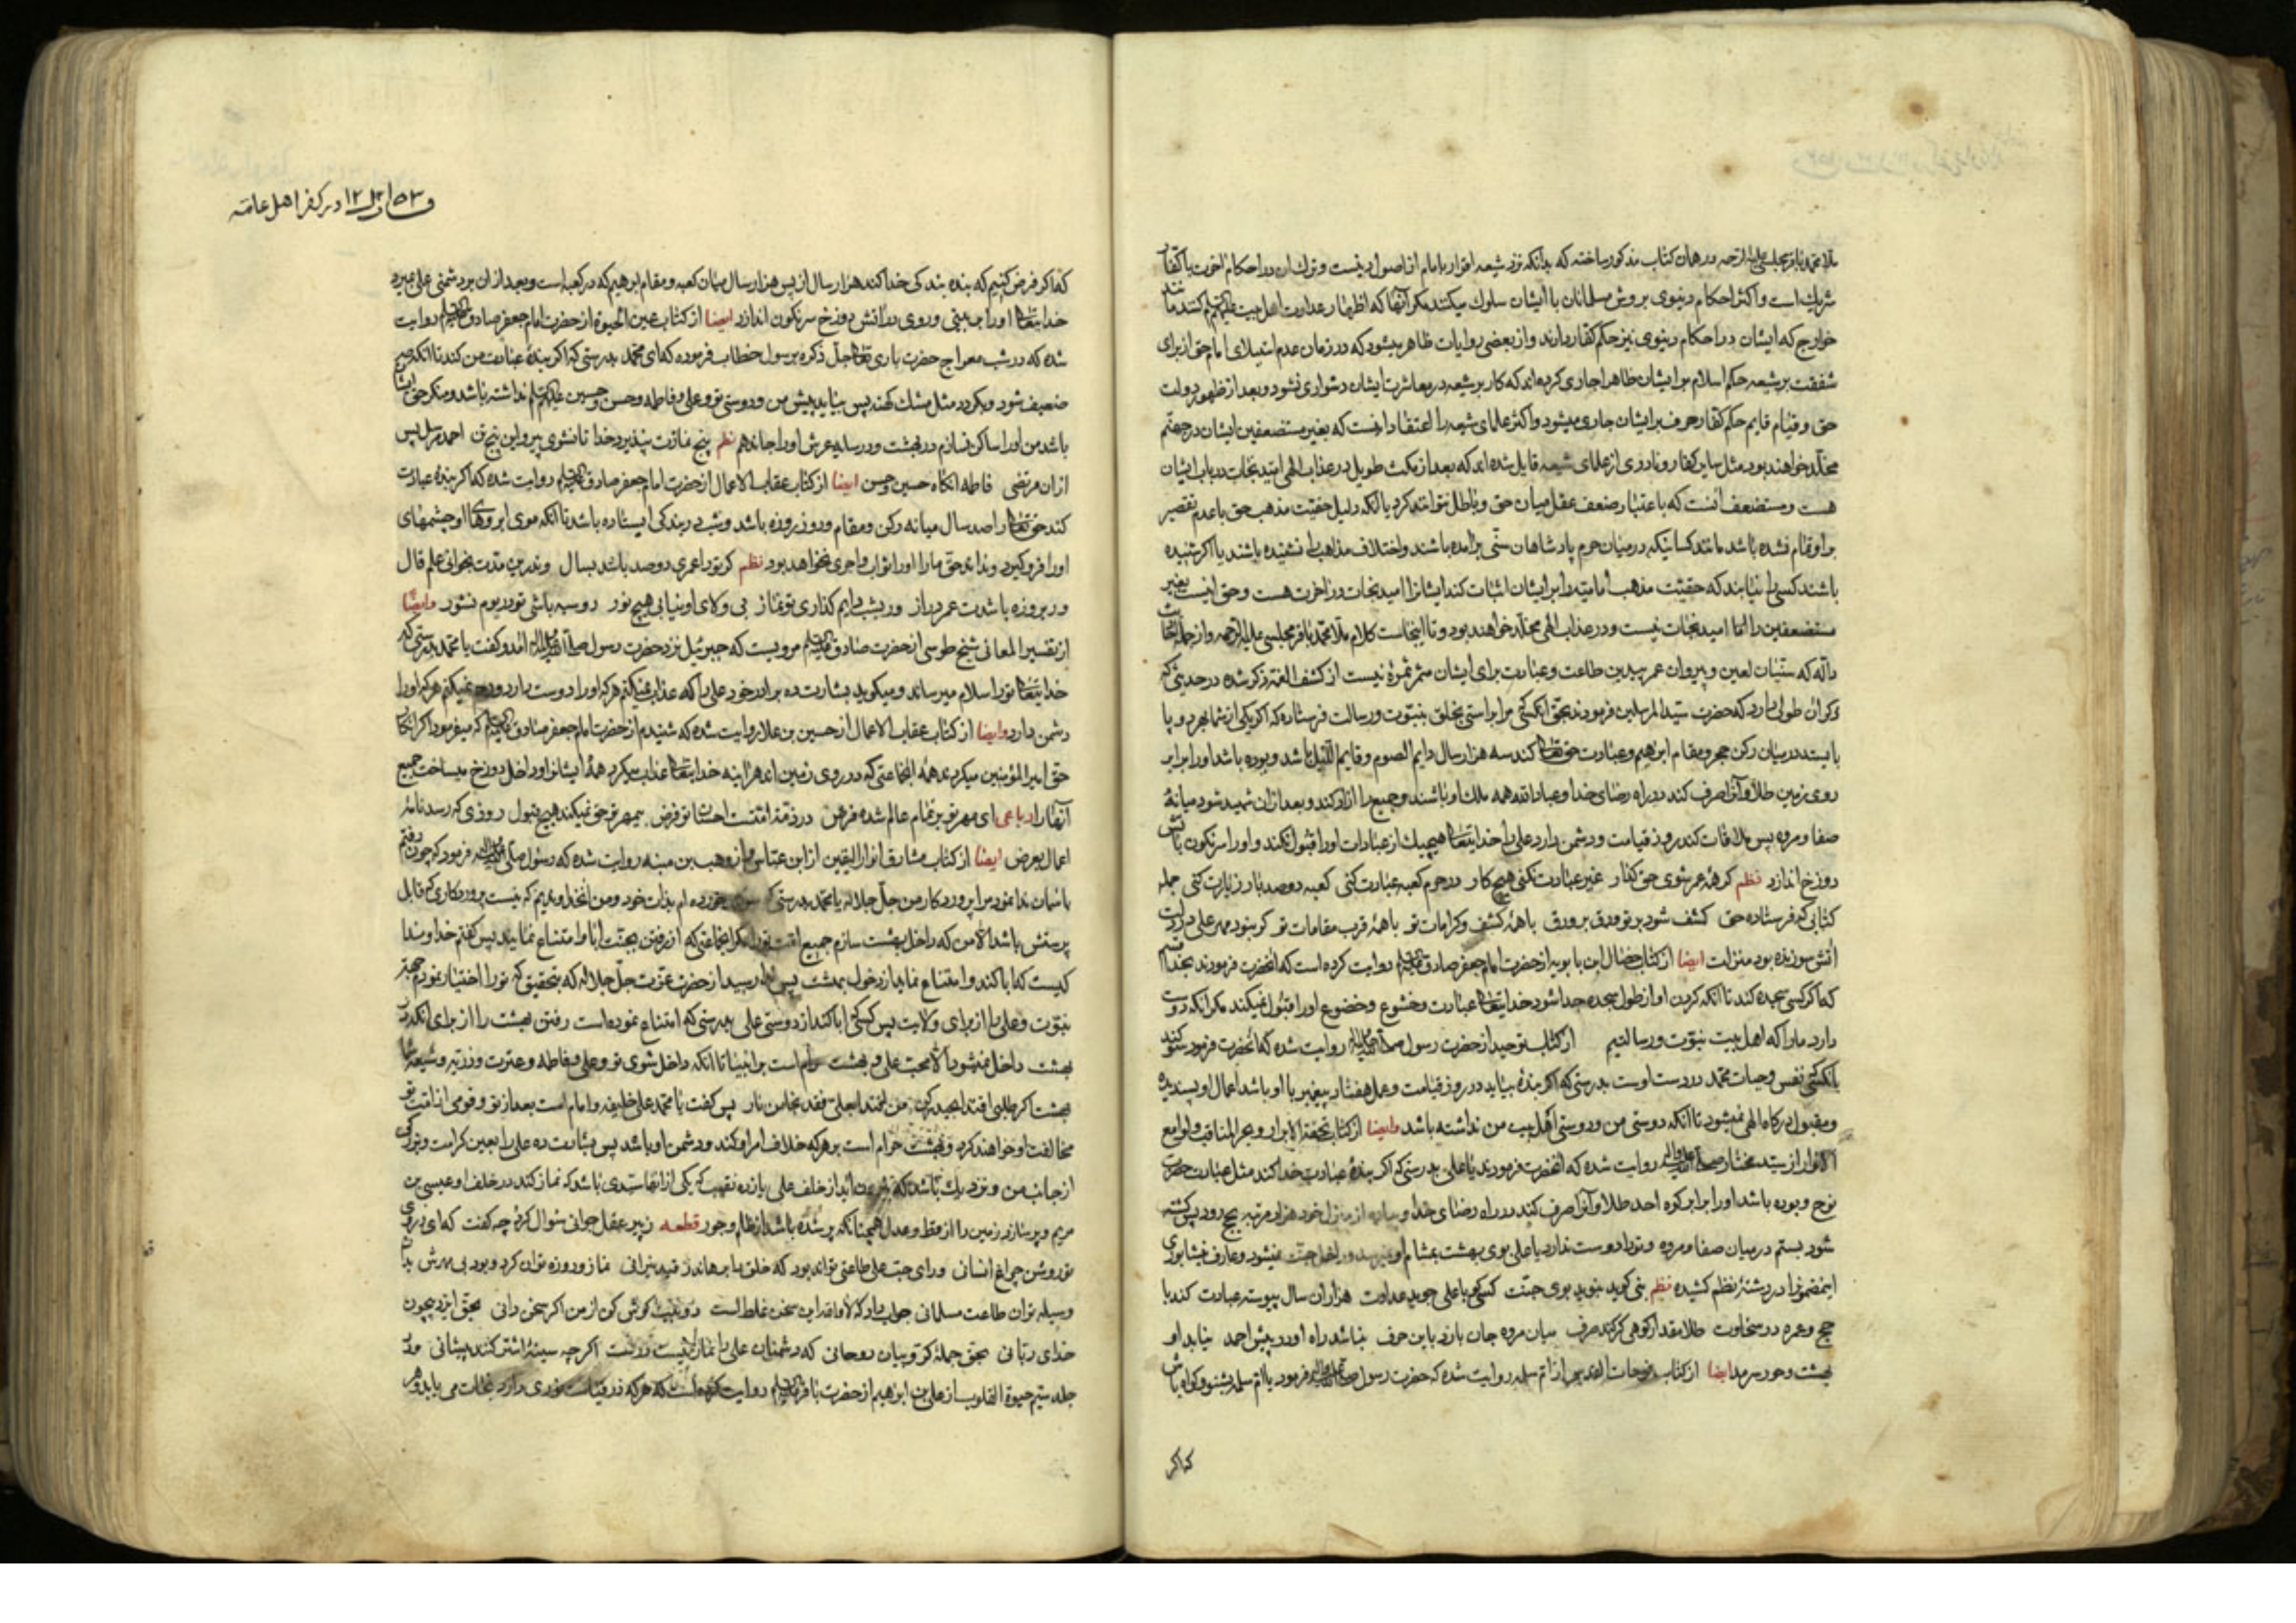 ملا محمد باقر مجلسی علیه الرحمه در همان کتاب مذکور ساخته که بدانکه نزد شیعه اقرار بامام از اصول دینست و ترک ان در احکام اخرت با کفار
شریک است و اکثر احکام دنیوی بروش مسلمانان با ایشان سلوک میکنند مکر آنها که اظهار عداوت اهل بیت علیهم السلم کنند مانند
خوارج که ایشان در احکام دنیوی نیز حکم کفار دارند و از بعضی روایات ظاهر میشود که در زمان عدم استیلای امام حق از برای
شفقت بر شیعه حکم اسلام بر ایشان ظاهرا جاری کرده‌اند که کار بر شیعه در معاشرت ایشان دشواری نشود و بعد از ظهور دولت
حق و قیام قایم حکم کفار برایشان جاری میشود و اکثر علمای شیعه را اعتقاد انست که بغیر مستضعفین ایشان در جهنم
مخلد خواهند بود مثل سایر کفار و نادری از علمای شیعه قایل شده اند که بعد از مکث طویل در عذاب الهی امید نجات در باب ایشان
هست و مستضعف آنست که باعتبار ضعف عقل میان حق و باطل نتوانند کرد یا انکه دلیل حقیت مذهب حق با عدم تقصیر
بر او تمام نشده باشد مانند کسانیکه در میان حرم پادشاهان سنی برآمده باشند و اختلاف مذاهب را نشنیده باشند یا اکر شنیده
باشند کسی را نیابند که حقیت مذهب امامیه را بر ایشان اثبات کند ایشانرا امید نجات در آخرت هست و حق اینست بغیر
مستضعفین را امید نجات نیست و در عذاب الهی مخلد خواهند بود و تا اینجاست کلام ملا محمد باقر مجلسی علیه الرحمه و از جمله
داله که سنیان لعین و پیروان عمر بیدین طاعت و عبادت برای ایشان مثمر ثمره نیست از کشف الغمه ذکر شده در حدیثی که
ذکر ان طولی دارد که حضرت سید المرسلین فرمودند بحق انکسی که مرا براستی بخلق بنبوت و رسالت فرستاده که اکر یکی از شما
بایستد در میان رکن حجر و مقام ابرهیم و عبادت حق تعالی کند سه هزار سال دایم الصوم و قایم اللیل باشد و بوده باشد او را برابر
روی زمین طلا و آنرا صرف کند در راه رضای خدا و عباد الله همه ملک او باشند و جمیع را ازاد کند و بعد از ان شهید شود میانهٔ
صفا و مروه پس ملاقات کند روز قیامت و دشمن دارد علی را خدایتعالی هیچیک از عبادات او را قبول نکند و او را سرنکون باتش
دوزخ اندازد نظم کر همه عمر شوی حق کذار غیر عبادت نکنی هیچ کار در حرم کعبه عبادت کنی کعبه دوصد بار زیارت کنی جمله
کتابی که فرستاده حق کشف شود بر تو ورق بر ورق با همهٔ کشف و کرامات تو با همهٔ قرب مقامات تو کر نبود مهر علی در دلت
آتش سوزنده بود منزلت ایضا از کتاب خصال ابن بابویه از حضرت امام جعفر صادق علیه السلم روایت کرده است که انحضرت فرمودند بخدا قسم
که اکر کسی سجده کند تا انکه کردن او از طول سجده جدا شود خدایتعالی عبادت و خشوع و خضوع او را قبول نمیکند مکر انکه دوست
دارد ما را که اهل بیت نبوت و رسالتیم از کتاب توحید از حضرت رسول صلی الله علیه و اله روایت شده که انحضرت فرمود سوکند
بانکسی که نفس و حیات محمد در دست اوست بدرستی که اکر بندهٔ بیاید در روز قیامت و عمل هفتاد پیغمبر با او باشد اعمال او پسندیده
و مقبول درکاه الهی نمیشود تا انکه دوستی من و دوستی اهل بیت من نداشته باشد وایضا از کتاب تحفة الابرار و بحر المناقب و لوامع
الانوار از سید مختار صلی الله علیه واله روایت شده که انحضرت فرمودند یا علی بدرستی که اکر بندهٔ عبادت خدا کند مثل عبادت حضرت
نوح و بوده باشد او را برابر کوه احد طلا و آنرا صرف کند در راه رضای خدا و پیاده از منزل خود هزار مرتبه بحج رود پس کشته
شود بستم در میان صفا و مروه و ترا دوست ندارد یا علی بوی بهشت بمشام او نمیرسد و داخل جنت نمیشود و عارف نیشابوری
اینمضمونرا در رشتهٔ نظم کشیده نظم نبی کوید نبوید بوی جنت کسی کو با علی جوید عداوت هزاران سال پیوسته عبادت کند با
حج و عمره در سخاوت طلا مقدار کوهی کر کند صرف میان مروه جان بازد باین حرف نباشد راه او در پیش احمد نیابد او
بهشت و حور سرمد ایضا از کتاب از ام سلمه روایت شده که حضرت رسول صلی الله علیه واله فرمود یا ام سلمه بشنو و کواه باش
که اکر
ف در کفر اهل عامه
که اکر فرض کنیم که بنده بندکی خدا کند هزار سال از پس هزار سال میان کعبه و مقام ابرهیم که در کعبه است و بعد از ان بر دشمنی علی بمیرد
خدایتعالی او را بر بینی و روی در اتش دوزخ سرنکون اندازد ایضا از کتاب عین الحیوة از حضرت امام جعفر صادق علیه السلم روایت
شده که در شب معراج حضرت باری تعالی جل ذکره برسول خطاب فرموده که ای محمد بدرستی که اکر بندهٔ عبادت من کند تا انکه
ضعیف شود و بکردد مثل مشک کهنه پس بیاید پیش من و دوستی تو و علی و فاطمه و حسن و حسین علیهم السلم نداشته باشد و منکر حق ایشان
باشد من او را ساکن نسازم در بهشت و در سایه عرش او را جا ندهم نظم پنج نمازت نپذیرد خدا تا نشوی پیرو این پنج تن احمد مرسل پس
از ان مرتضی فاطمه انکاه حسین و حسن ایضا از کتاب عقاب الاعمال از حضرت امام جعفر صادق علیه السلم روایت شده که اکر بندهٔ عبادت
کند حق تعالی را صد سال میانه رکن و مقام و روز روزه باشد و شب در بندکی ایستاده باشد تا انکه موی ابروهای او چشمهای
او را فرو کیرد و نداند حق ما را او را ثواب و اجری نخواهد بود نظم کر تو را عمری دوصد باشد بسال وندرین مدت بخوانی علم قال
ور بروزه باشدت عمر دراز ور بشب دایم کذاری تو نماز بی ولای او نیابی هیچ نور رو سیه باشی تو در یوم نشور وایضا
از تفسیر المعانی شیخ طوسی از حضرت صادق علیه السلم مرویست که جبرئیل نزد حضرت رسول صلی الله علیه واله آمد و کفت یا محمد بدرستی که
خدایتعالی ترا سلام میرساند و میکوید بشارت ده برادر خود علی را که عذاب نمیکنم هر که او را دوست دارد و رحم نمیکنم هر که او را
دشمن دارد وایضا از کتاب عقاب الاعمال از حسین بن علا روایت شده که شنیدم از حضرت امام جعفر صادق علیه السلم که میفرمود اکر انکار
حق امیر المؤمنین میکردند همهٔ انجماعتی که در روی زمین اند هراینه خدایتعالی عذاب میکرد همهٔ ایشانرا و داخل دوزخ میساخت جمیع
آنها را رباعی ای مهر تو بر تمام عالم شده فرض در ذمهٔ امتست احسان تو قرض بیمهر تو حق نمیکند هیچ قبول روزی که رسد نامهٔ
اعمال بعرض ایضا از کتاب مشارق انوار الیقین از ابن عباس و از وهب بن منبه روایت شده که رسول صلی الله علیه واله فرمود که چون رفتم
باسمان ندا نمود مرا پروردکار من جل جلاله یا محمد بدرستی که سوکند خورده ام بذات خود و من انخداوندیم که نیست پروردکاری که قابل
پرستش باشد الا من که داخل بهشت سازم جمیع امت تو را مکر انجماعتی که از رفتن بجنت ابا و امتناع نمایند پس کفتم خداوندا
کیست که ابا کند و امتناع نماید از دخول بهشت پس ندا رسید از حضرت عزت جل جلاله که بتحقیق که تو را اختیار نمودم جهت
نبوت و علی را از برای ولایت پس کسی که ابا کند از دوستی علی بدرستی که امتناع نموده است رفتن بهشت را از برای انکه در
بهشت داخل نمیشود الا محب علی و بهشت حرام است بر انبیا تا انکه داخل شوی تو و علی و فاطمه و عترت و ذریه و شیعه شما
پس کفت یا محمد علی خلیفه و امام است بعد از تو و قومی از امت تو
مخالفت او خواهند کرد و بهشت حرام است بر هر که خلاف امر او کند و دشمن او باشد پس بشارت ده علی را بعین کرامت و بزرکی
از جانب من و نزدیک باشد که بیرون آید از خلف علی یازده نقیب که یکی از انها سیدی باشد که نماز کند در خلف او عیسی بن
مریم و پر سازد زمین را از قسط و عدل همچنانکه پر شده باشد از ظلم و جور قطعه ز پیر عقل جوانی سئوال کرد چه کفت که ای ز روی
تو روشن چراغ انسانی ورای حب علی طاعتی تواند بود که خلق را برهاند ز قید نیرانی نماز و روزه توان کرد و بود بی مهرش بدان
وسیله توان طاعت مسلمانی جواب داد که لا والله این سخن غلط است دو بیت کوش کن از من اکر سخن دانی بحق ایزد بیچون
خدای ربانی بحق جملهٔ کروبیان روحانی که دشمنان علی را نماز نیست درست اکر چه سینهٔ اشتر کنند پیشانی و در
جلد سیم حیوة القلوب از علی بن ابرهیم از حضرت باقر علیه السلم روایت کرده است که هر که در قیامت نوری دارد نجات می یابد و هر